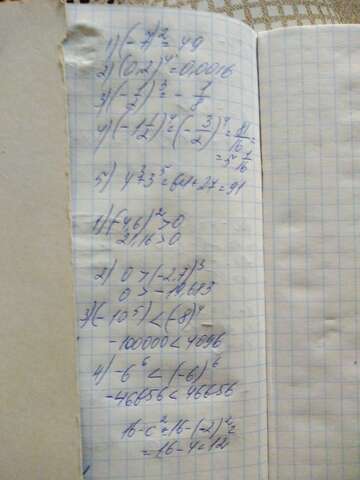 1) (-7)² = 49
2) (0,2)⁴ = 0,0016
3) (-1/2)³ = -1/8
4) (-1 1/2)⁴ = (-3/2)⁴ = 81/16 =
= 5 1/16
5) 4³ + 3³ = 64 + 27 = 91
1) (-4,6)² > 0
21,16 > 0
2) 0 > (-2,7)³
0 > -19,683
3) (-10⁵) < (-8)⁴
-100000 < 4096
4) -6⁶ < (-6)⁶
-46656 < 46656
16 - c² = 16 - (-2)² =
= 16 - 4 = 12